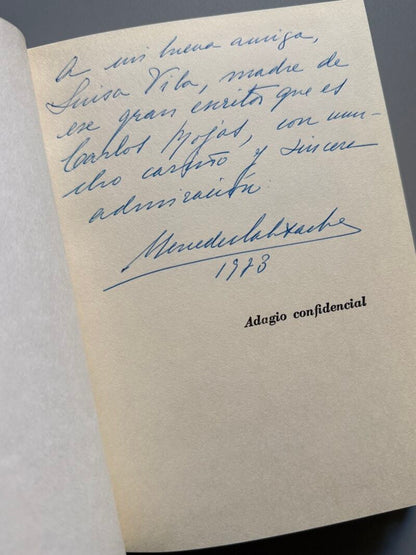 A mi buena amiga,
Luisa Vila, madre de
ese gran escritor que es
Carlos Rojas, con mu-
cho cariño y sincera
admiración.
Mercedes Salisachs
1973
Adagio confidencial